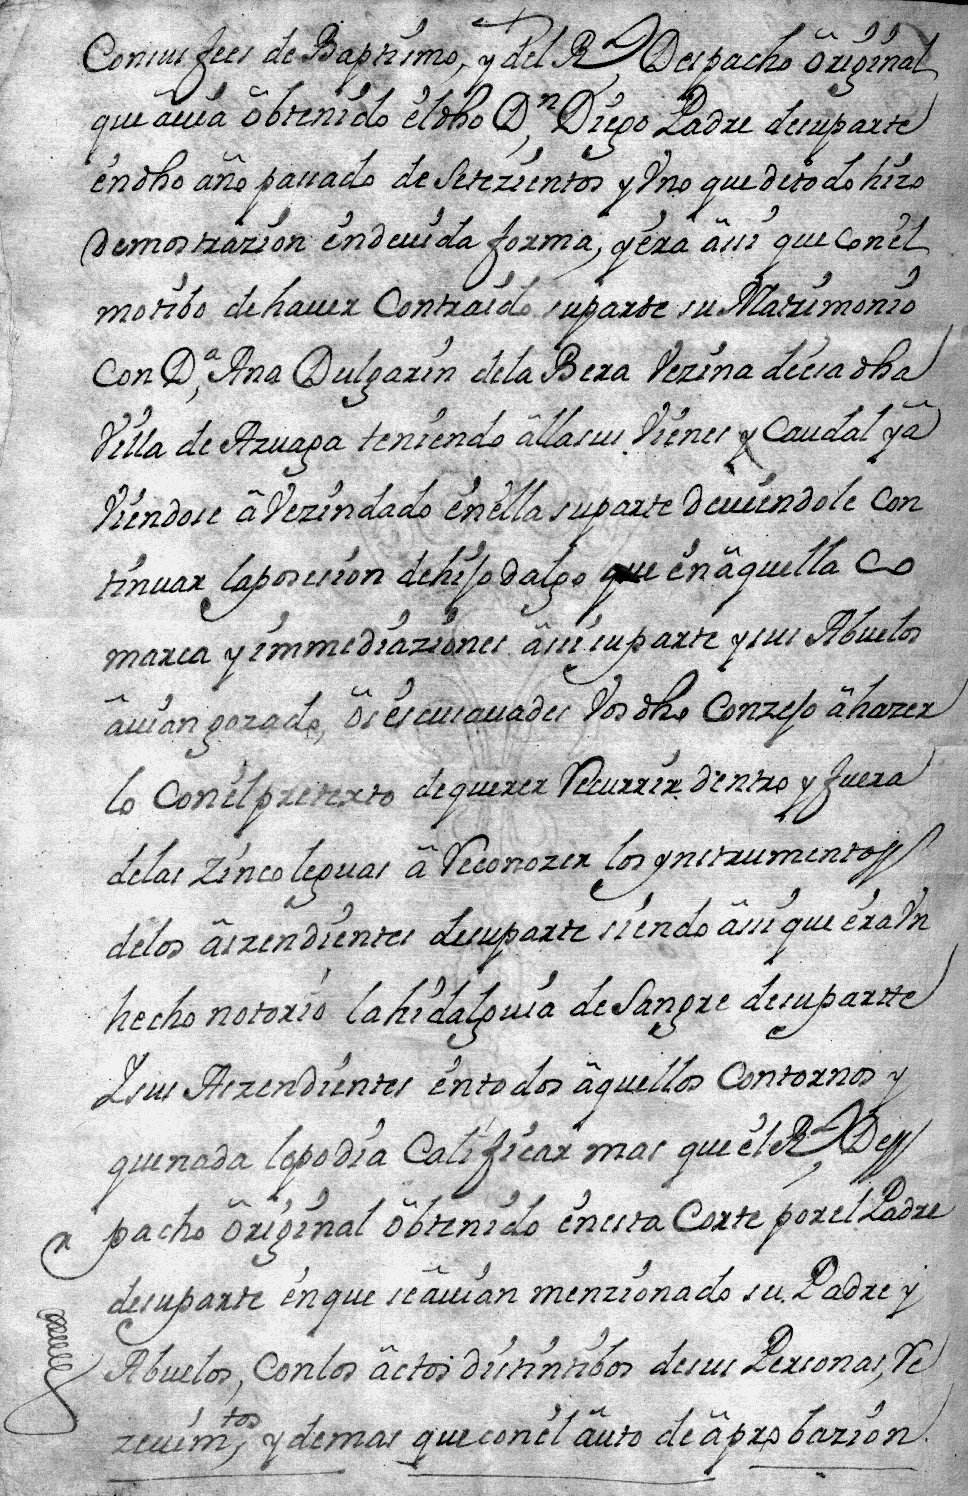 Consus fees de Baptismo, y del Rl Despacho original
que avia obtenido el dho Dn Diego Padre desuparte
en dho año passado de Setezientos y Uno que detodo hizo
demostrazion en devida forma, y era assi que con el
motibo de haver Contraido suparte su Matrimonio
con Da Ana Dulgarin dela Bera Vezina de essa dha
Villa de Azuaga teniendo alla sus Vienes y Caudal y a
Viendose aVezindado en ella suparte deviendole con
tinuar laposesion dehijodalgo que en aquella Co
marca y immediaziones assi suparte y sus Abuelos
avian gozado, os escusavades Vos dho Conzejo ahazer
lo Con el pretexto de querer Recurrir dentro y fuera
delas Zinco leguas a Reconozer los ynstrumentos
delos aszendientes desuparte siendo assi que era Un
hecho notorio la hidalguia de Sangre desupartte
Ysus Aszendientes en todos aquellos Contornos y
quenada lopodia Calificar mas que el Rl Des
pacho original obtenido en esta Corte por el Padre
desuparte en que se avian menzionado su Padre y
Abuelos, Con los actos distintibos desus Personas, Re
zevimtos, y demas que con el auto de aprobazion